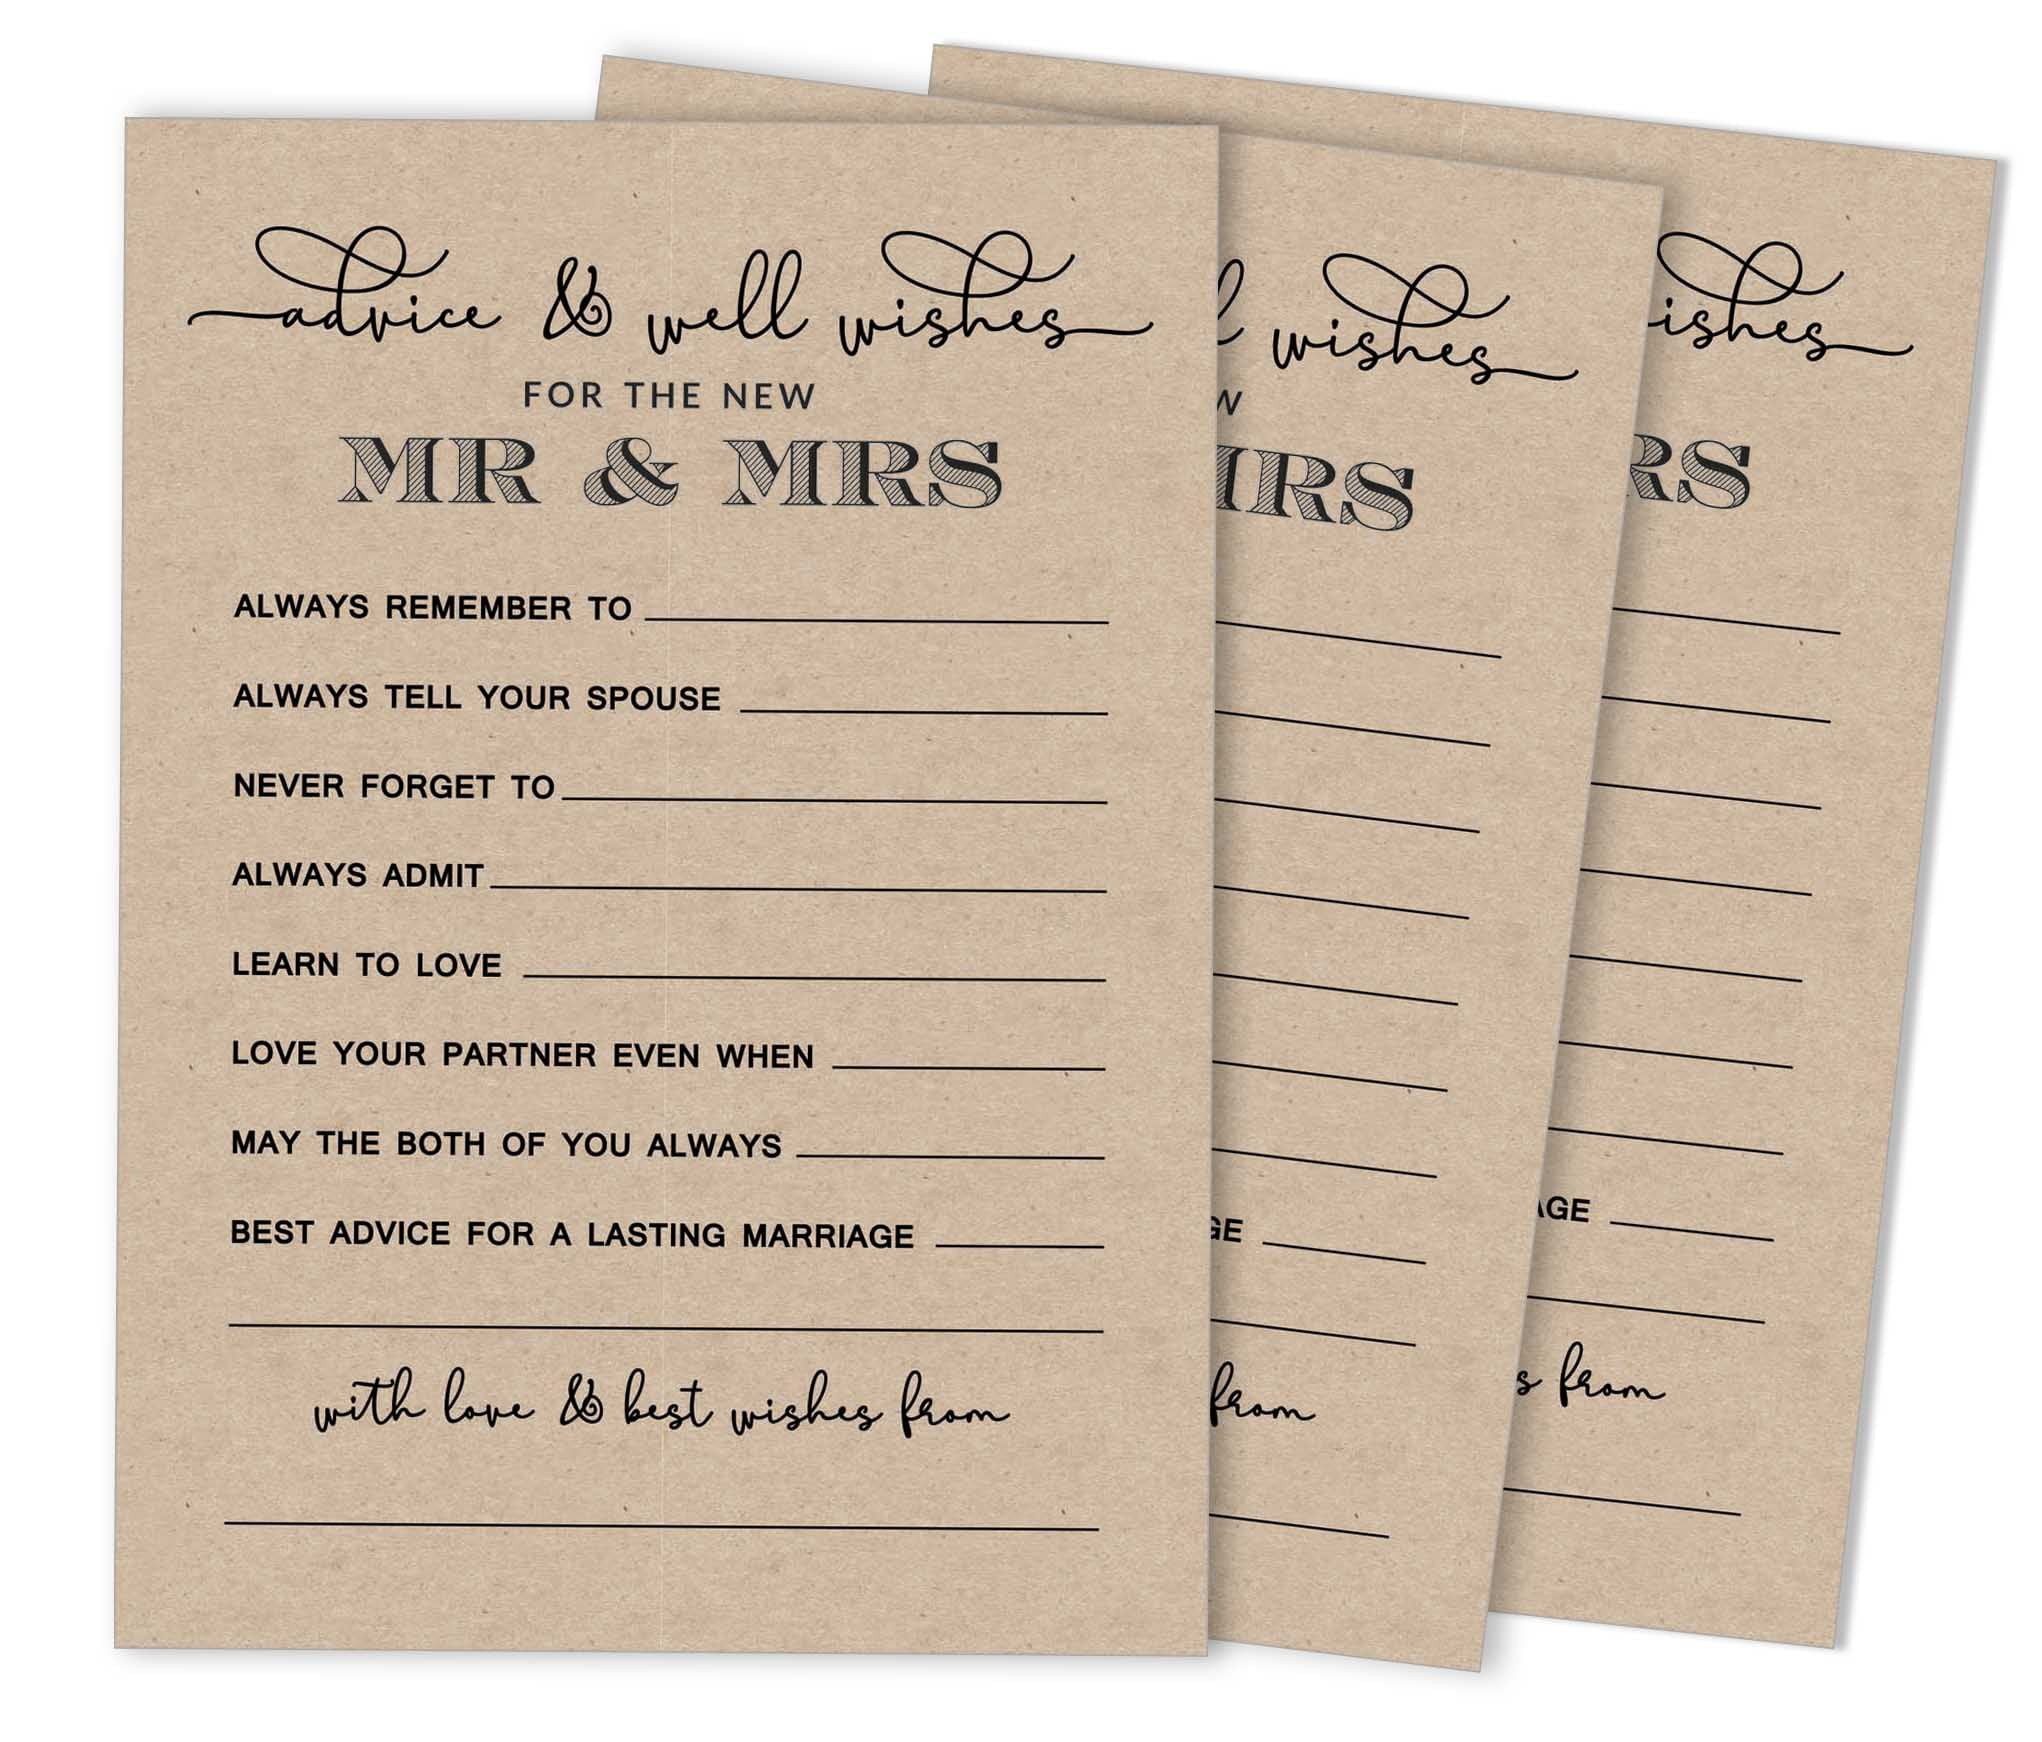 advice & well wishes
FOR THE NEW
MR & MRS
ALWAYS REMEMBER TO
ALWAYS TELL YOUR SPOUSE
NEVER FORGET TO
ALWAYS ADMIT
LEARN TO LOVE
LOVE YOUR PARTNER EVEN WHEN
MAY THE BOTH OF YOU ALWAYS
BEST ADVICE FOR A LASTING MARRIAGE
with love & best wishes from
l wishes
W
MRS
GE
from
ishes
RS
AGE
s from